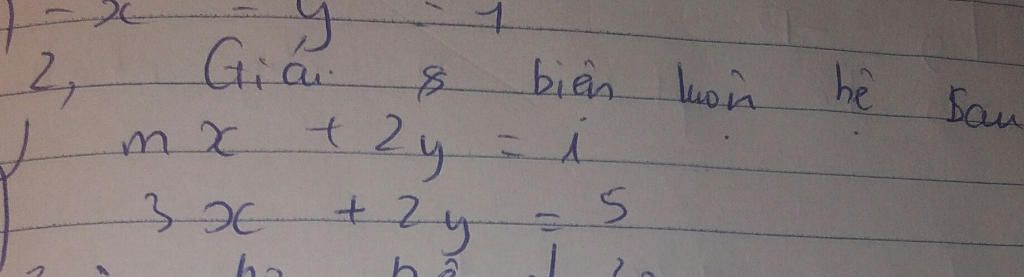 - x - y = 1
2, Giải & biện luận hệ sau
mx + 2y = 1
3x + 2y = 5